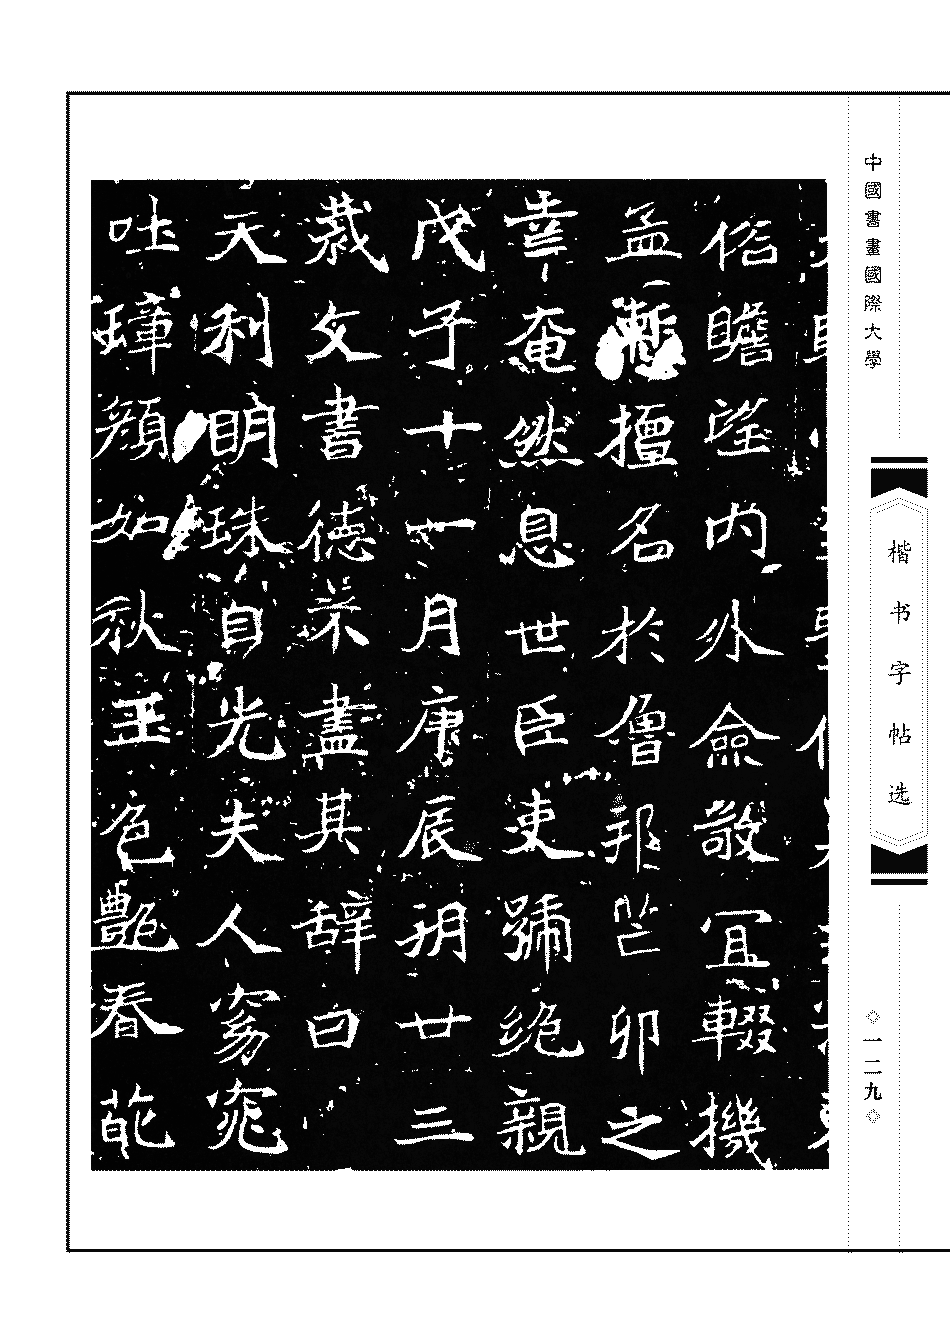 中國書畫國際大學
楷书字帖选
一二九
俗瞻望内外僉敬宜輟機
孟慙擅名於魯邦芒卯之
幸奄然息世臣吏號絶親
戊子十一月庚辰朔廿三
裁文書德盡其辞曰
天利明珠自光夫人窈窕
吐璋顔如秋玉色艷春葩